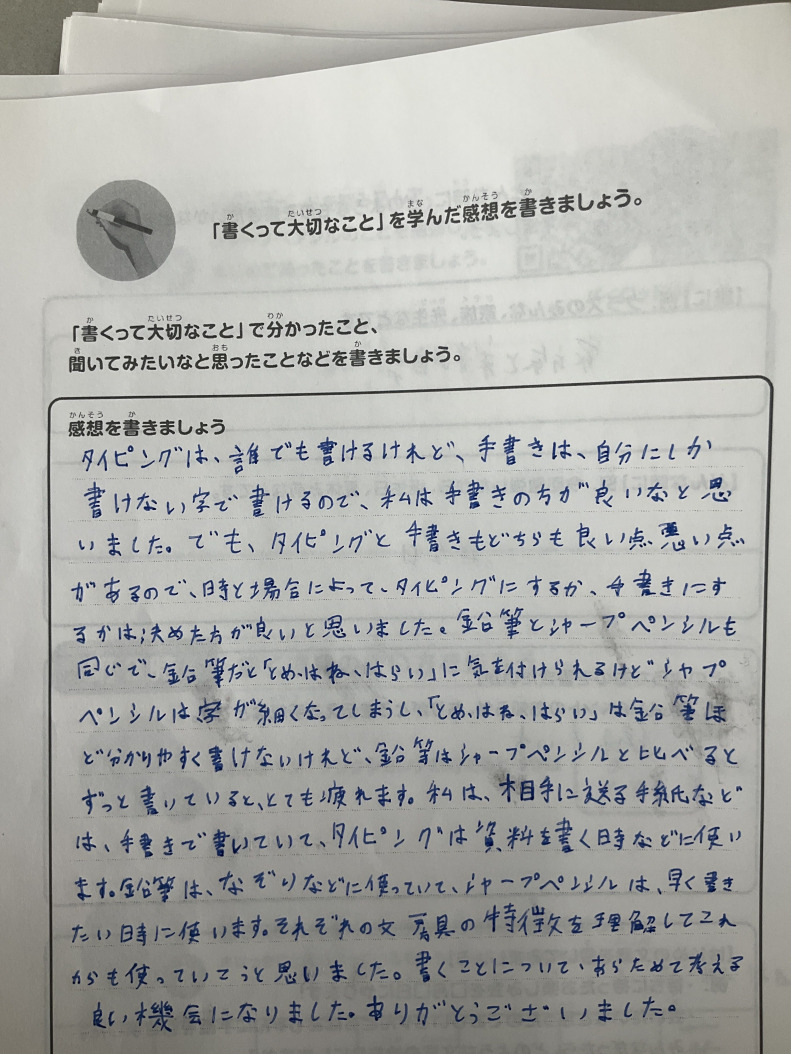 「書くって大切なこと」を学んだ感想を書きましょう。
「書くって大切なこと」で分かったこと、
聞いてみたいなと思ったことなどを書きましょう。
感想を書きましょう
タイピングは、誰でも書けるけれど、手書きは、自分にしか
書けない字で書けるので、私は手書きの方が良いなと思
いました。でも、タイピングと手書きもどちらも良い点悪い点
があるので、時と場合によって、タイピングにするか、手書きにす
るかは決めた方が良いと思いました。鉛筆とシャープペンシルも
同じで、鉛筆だと「とめ、はね、はらい」に気を付けられるけどシャプ
ペンシルは字が細くなってしまうし、「とめ、はね、はらい」は鉛筆ほ
ど分かりやすく書けないけれど、鉛筆はシャープペンシルと比べると
ずっと書いていると、とても疲れます。私は、相手に送る手紙など
は、手書きで書いていて、タイピングは資料を書く時などに使い
ます。鉛筆は、なぞりなどに使っていて、シャープペンシルは、早く書き
たい時に使います。それぞれの文房具の特徴を理解してこれ
からも使っていこうと思いました。書くことについて、あらためて考える
良い機会になりました。ありがとうございました。